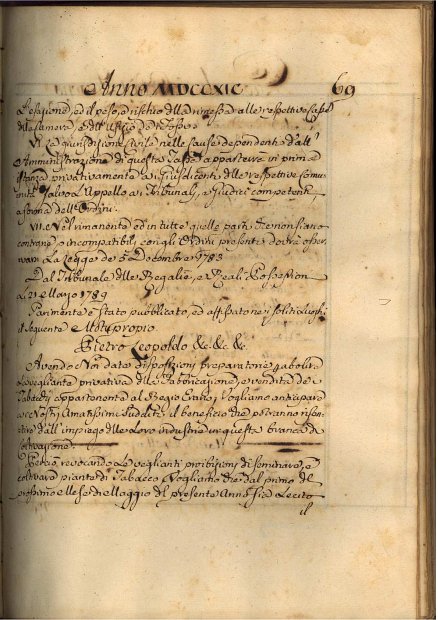 Anno MDCCXIC 69
Lesazione, ed il peso, e rischio della rimessa alle respettive Casse
della Camera, e dell'Uffizio de' Fossi.
VI. La giurisdizione Civile nelle cause dependenti dall'
Amministrazione di questa Tassa apparterrà in prima
istanza privativamente ai Giusdicenti delle respettive Comu
nità, salvo l'Appello ai Tribunali, e Giudici competenti
a forma dell'Ordini.
VII. Nel rimanente ed in tutte quelle parti che non siano
contrarie, o incompatibili con gli Ordini presenti dovrà osser
varsi la Legge de' 5 Decembre 1783
Dal Tribunale delle Regalie, e Reali Possessioni
Li 21 Marzo 1789
Parimente è stato pubblicato, ed affissato nei soliti luoghi
il seguente Motuproprio
Pietro Leopoldo &c. &c. &c.
Avendo Noi date disposizioni preparatorie per abolire
la vegliante privativa della Fabbricazione, e vendita de'
Tabacchi appartenente al Regio Erario, Vogliamo anticipare
ai Nostri Amatissimi Sudditi il benefizio che potranno risen
tire dall'impiego della Loro industria in questa branca di
coltivazione.
Perciò, revocando le veglianti proibizioni di seminare, e
coltivare piante di Tabacco, Vogliamo che dal primo del
prossimo Mese di Maggio del presente Anno sia lecito
il